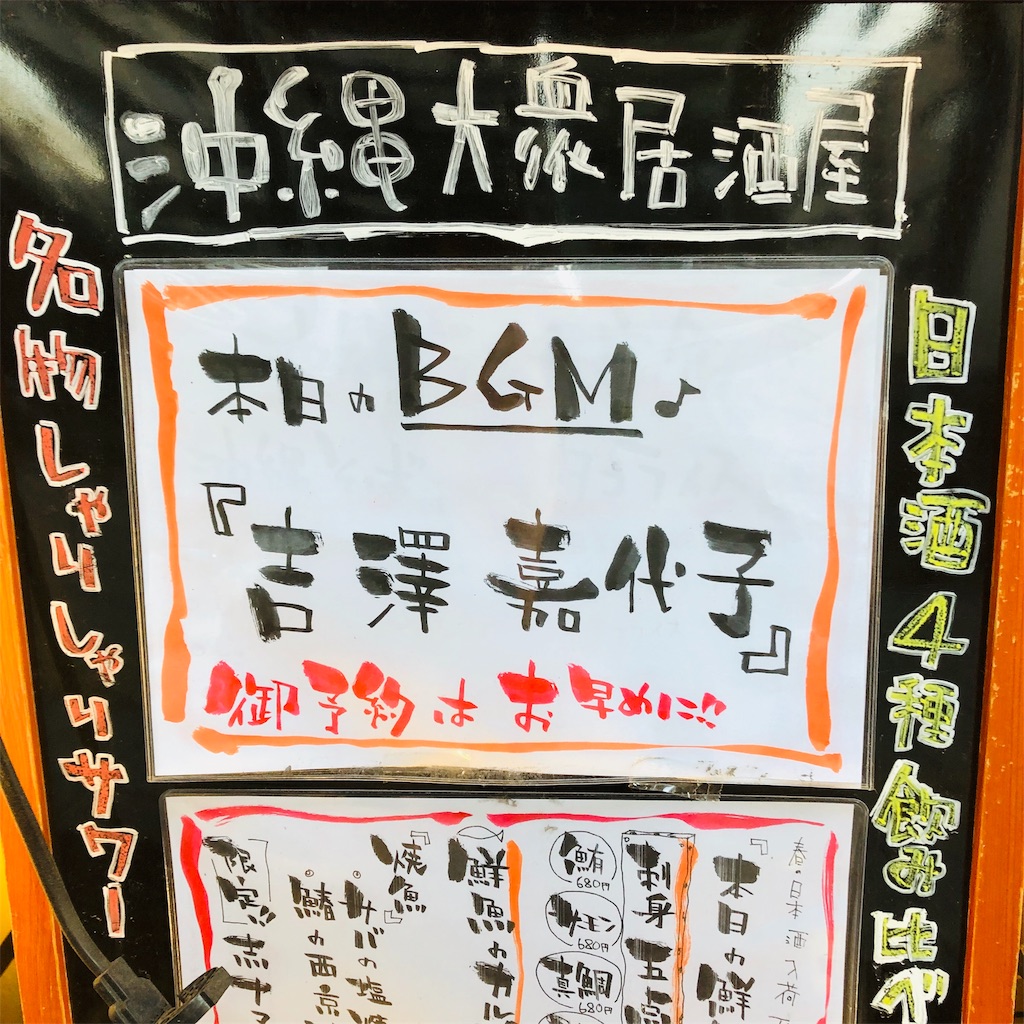 沖縄大衆居酒屋
名物しゃりしゃりサワー
日本酒4種飲み比べ
本日のBGM♪
『吉澤嘉代子』
御予約はお早めに!!
春の日本酒入荷
『本日の鮮
刺身
鮪
680円
サーモン
680円
真鯛
680円
鮮魚のカル
『焼魚』
サバの塩
鰆の西京
限定!!